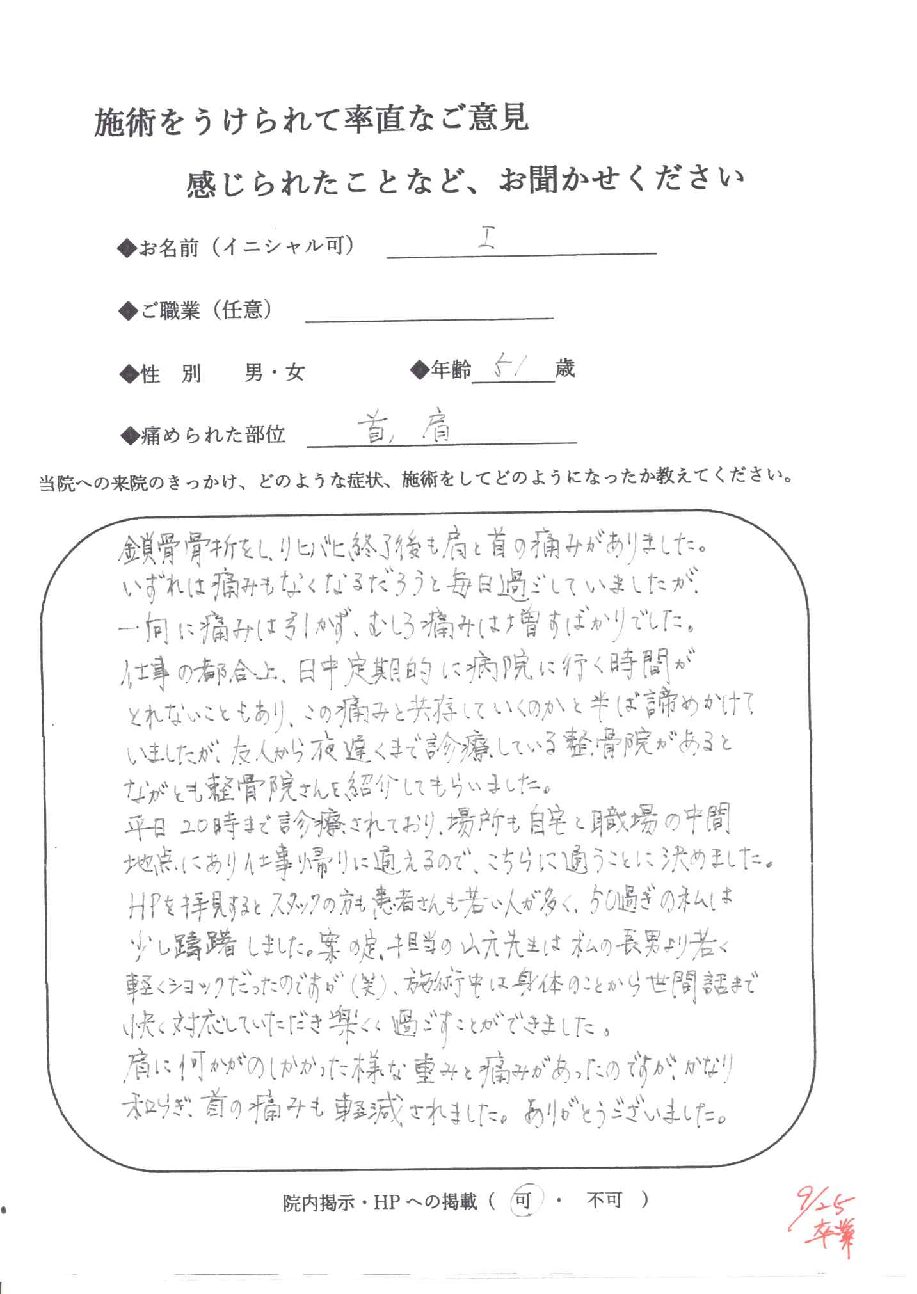 施術をうけられて率直なご意見
感じられたことなど、お聞かせください
◆お名前（イニシャル可） I
◆ご職業（任意）
◆性 別 男・女 ◆年齢 51 歳
◆痛められた部位 首, 肩
当院への来院のきっかけ、どのような症状、施術をしてどのようになったか教えてください。
鎖骨骨折をし、リハビリ終了後も肩と首の痛みがありました。
いずれは痛みもなくなるだろうと毎日過ごしていましたが、
一向に痛みは引かず、むしろ痛みは増すばかりでした。
仕事の都合上、日中定期的に病院に行く時間が
とれないこともあり、この痛みと共存していくのかと半ば諦めかけて
いましたが、友人から夜遅くまで診療している整骨院があると
ながとも整骨院さんを紹介してもらいました。
平日20時まで診療されており、場所も自宅と職場の中間
地点にあり仕事帰りに通えるので、こちらに通うことに決めました。
HPを拝見するとスタッフの方も患者さんも若い人が多く、50過ぎの私は
少し躊躇しました。案の定、担当の山元先生は私の長男より若く
軽くショックだったのですが（笑）、施術中は身体のことから世間話まで
快く対応していただき楽しく過ごすことができました。
肩に何かがのしかかった様な重みと痛みがあったのですが、かなり
和らぎ、首の痛みも軽減されました。ありがとうございました。
院内掲示・HPへの掲載（ 可 ・ 不可 ）
9/25
卒業